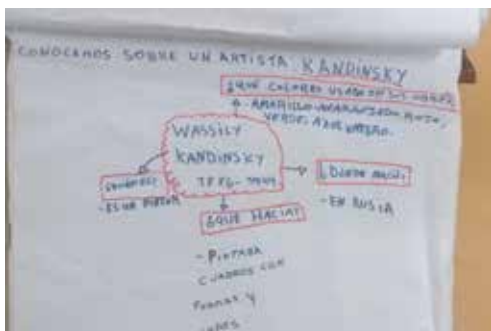 CONOCEMOS SOBRE UN ARTISTA KANDINSKY
¿QUÉ COLORES USABA EN SUS OBRAS?
- AMARILLO ANARANJADO ROJO,
VERDE, AZUL NEGRO.
WASSILY
KANDINSKY
- ES UN PINTOR
¿DONDE NACIO?
- EN RUSIA
¿QUE HACIA?
- PINTABA
CUADROS CON
FORMAS Y